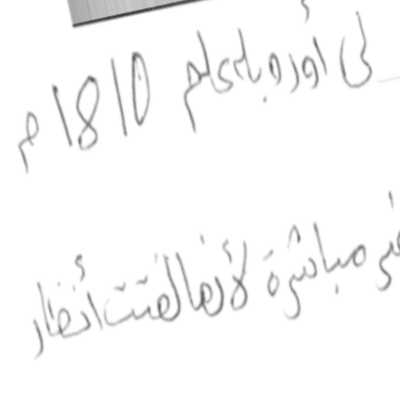 لى أوروبا عام 1810م
غير مباشرة لأنها لفتت أنظار